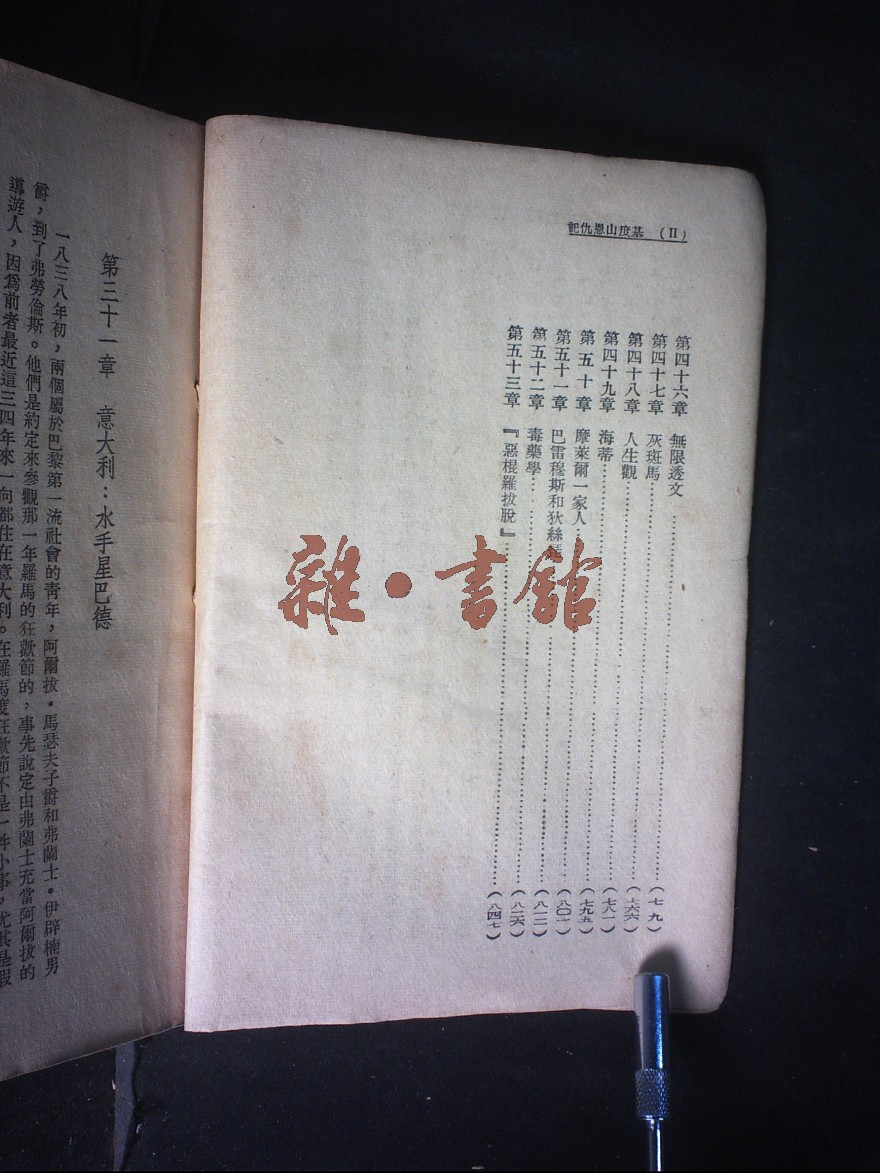 (II) 基度山恩仇記
第四十六章 無限透文……(七一九)
第四十七章 灰斑馬……(七六六)
第四十八章 人生觀……(七八一)
第四十九章 海蒂……(七九五)
第五十章 摩萊爾一家人……(八〇一)
第五十一章 巴雷穆斯和狄絲……(八一二)
第五十二章 毒藥學……(八二六)
第五十三章 『惡棍羅拔脫』……(八四七)
雜·書館
第三十一章 意大利：水手星巴德
一八三八年初，兩個屬於巴黎第一流社會的靑年，阿爾拔·馬瑟夫子爵和弗蘭士·伊辟楠男
爵，到了弗勞倫斯。他們是約定來參觀那一年羅馬的狂歡節的，事先說定由弗蘭士充當阿爾拔的
導遊人，因爲前者最近這三四年來一向都住在意大利。在羅馬度狂歡節不是一件小事，尤其是假